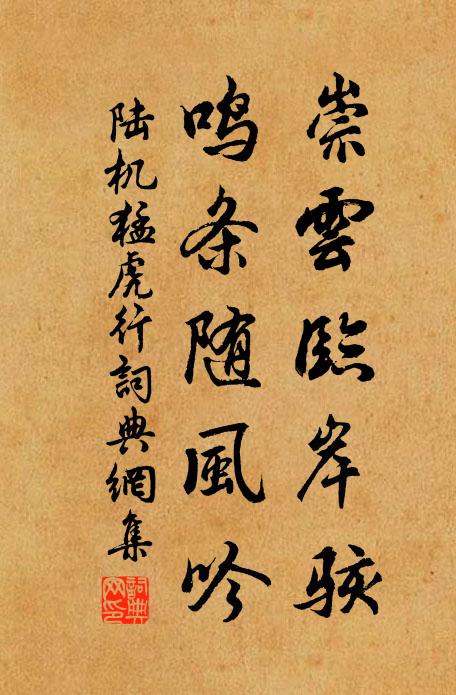 崇雲臨岸駭
鳴条随風吟
陆机猛虎行詞典網集
詞典网印